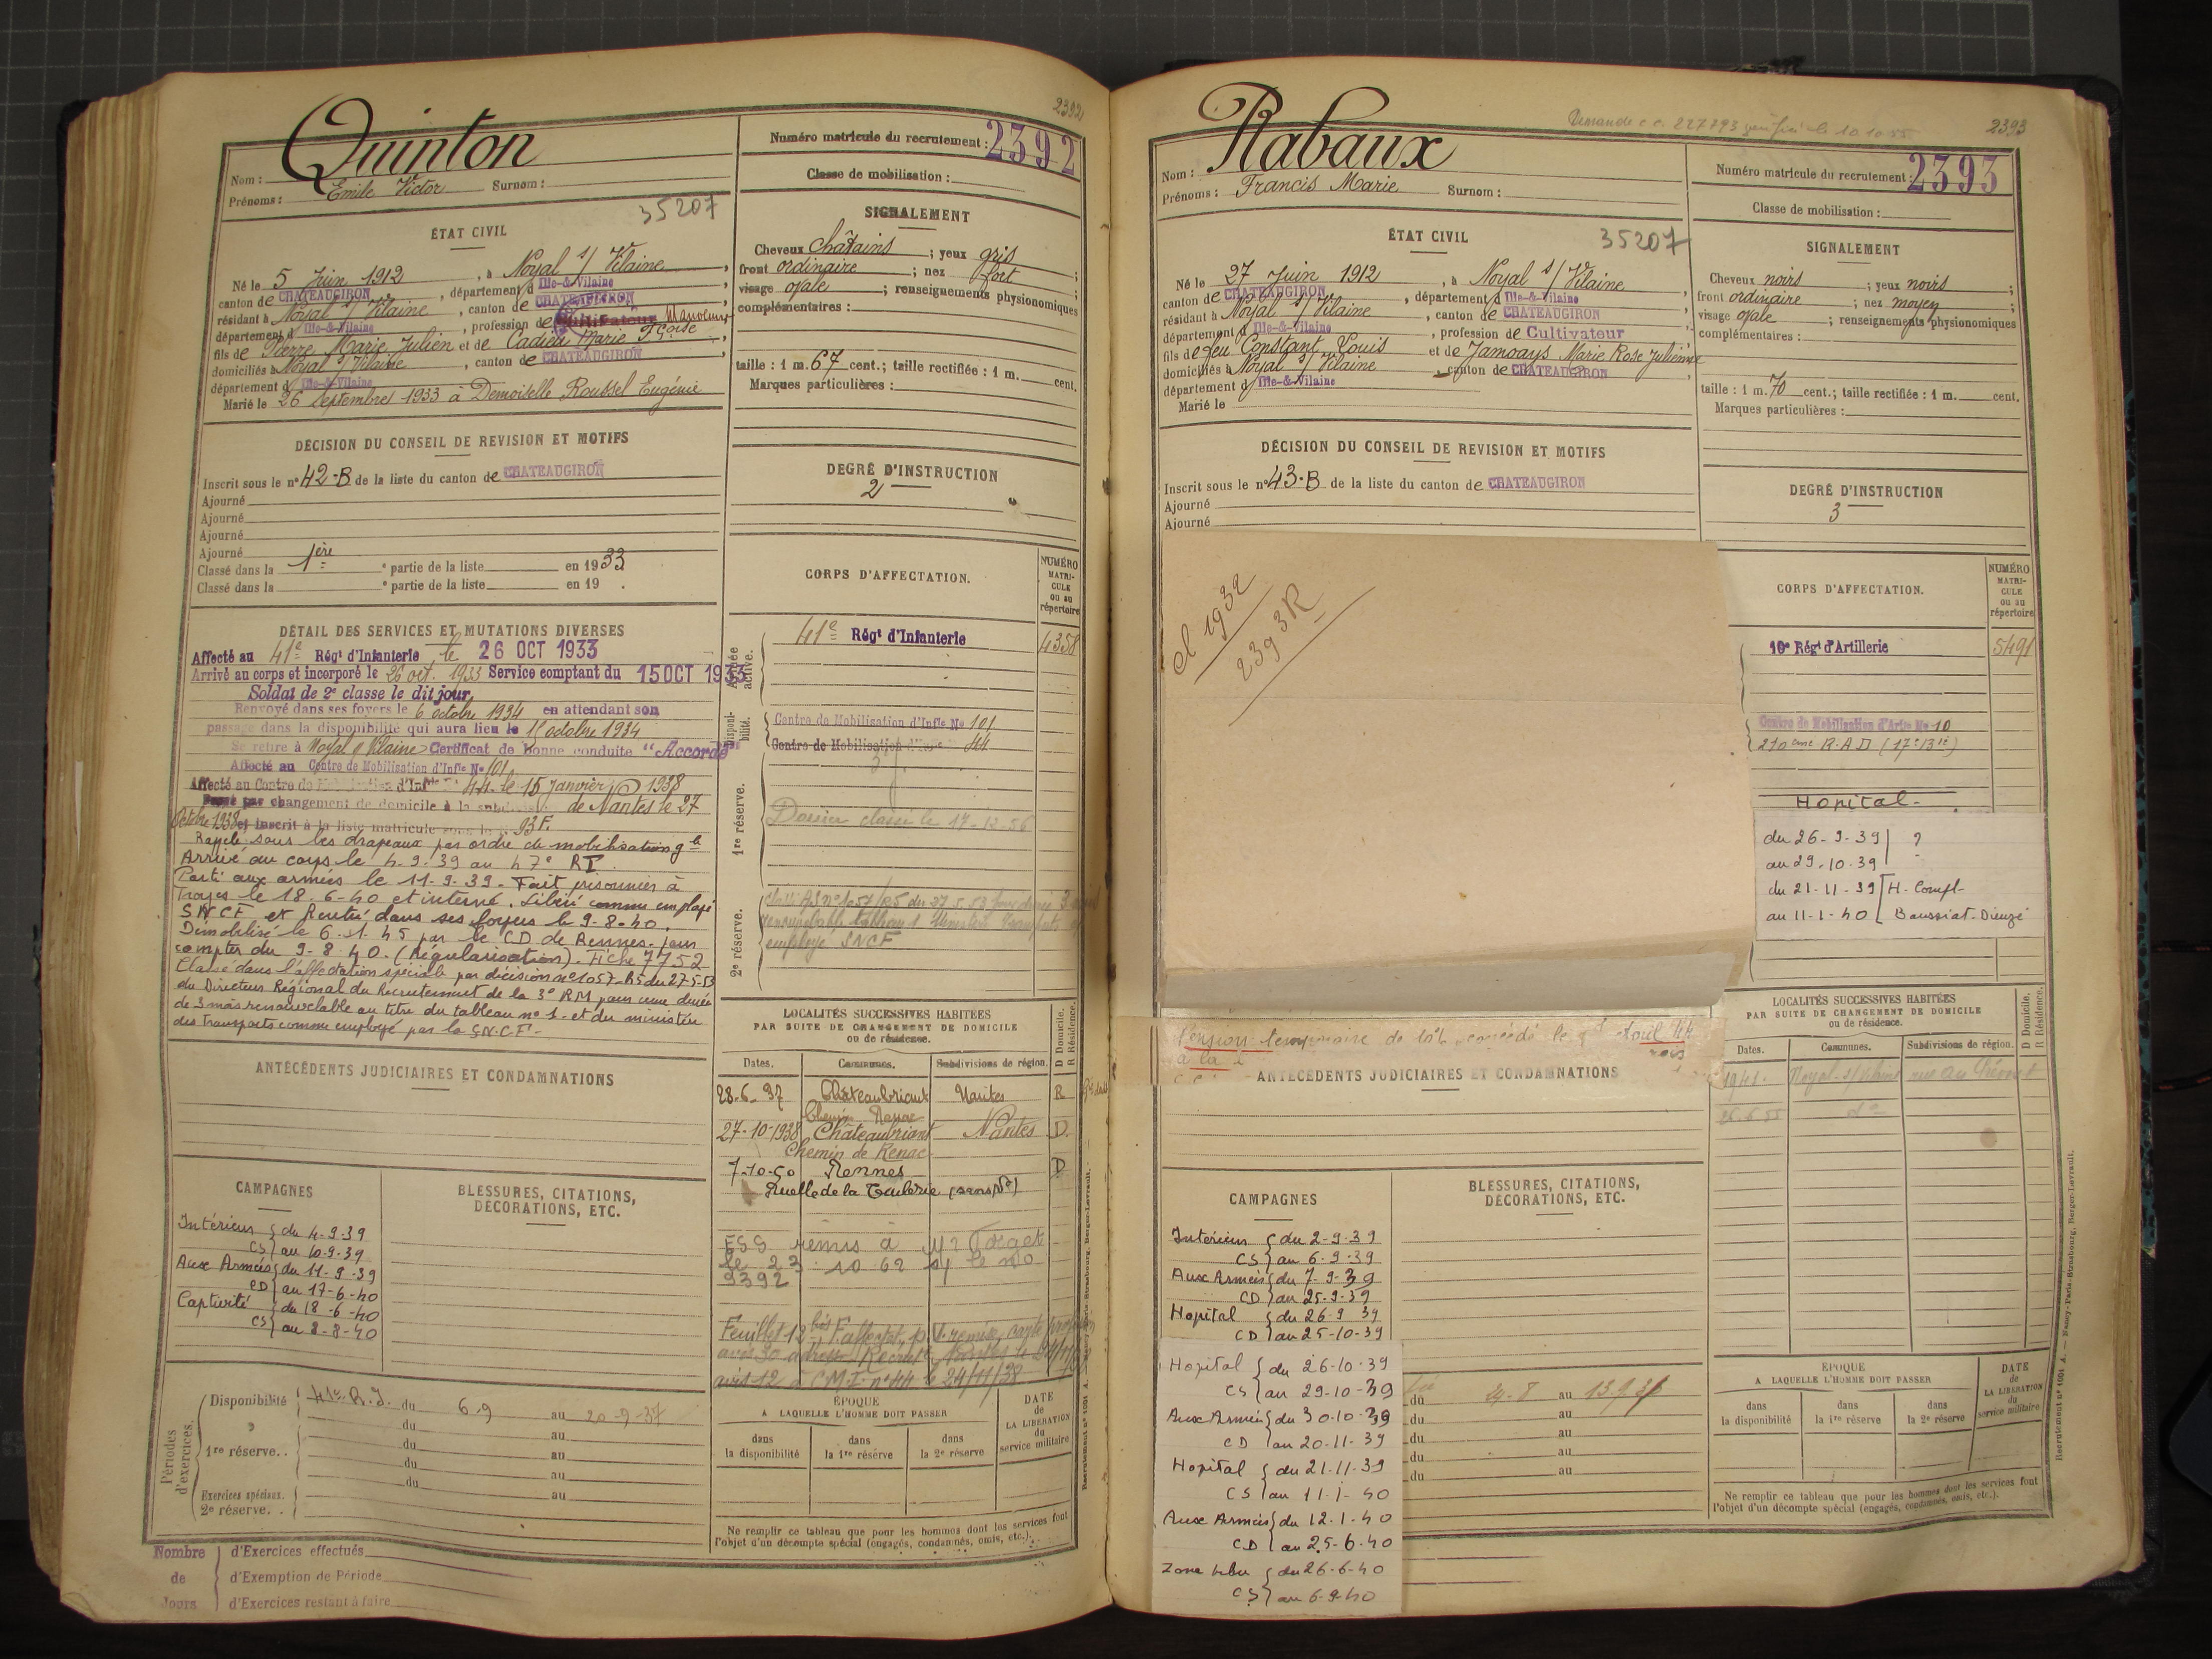 2392
Quinton
Nom :
Prénoms : Emile Victor Surnom :
Numéro matricule du recrutement : 2392
Classe de mobilisation :
35207
ÉTAT CIVIL
Né le 5 Juin 1912, à Noyal s/ Vilaine,
canton de CHATEAUGIRON, département d Ille-&-Vilaine,
résidant à Noyal s/ Vilaine, canton de CHATEAUGIRON,
département d Ille-&-Vilaine, profession de Cultivateur Manoeuvre
fils de Pierre Marie Julien et de Cadieu Marie Fçoise,
domiciliés à Noyal s/ Vilaine, canton de CHATEAUGIRON,
département d Ille-&-Vilaine
Marié le 26 Septembre 1933 à Demoiselle Roussel Eugénie
SIGNALEMENT
Cheveux châtains ; yeux gris ;
front ordinaire ; nez fort ;
visage ovale ; renseignements physionomiques
complémentaires :
taille : 1 m. 67 cent.; taille rectifiée : 1 m. cent.
Marques particulières :
DÉCISION DU CONSEIL DE REVISION ET MOTIFS
Inscrit sous le n° 42-B de la liste du canton de CHATEAUGIRON
Ajourné
Ajourné
Ajourné
Ajourné
Classé dans la 1ère e partie de la liste en 1933
Classé dans la e partie de la liste en 19 .
DEGRÉ D'INSTRUCTION
2
DÉTAIL DES SERVICES ET MUTATIONS DIVERSES
Affecté au 41e Régt d'Infanterie le 26 OCT 1933
Arrivé au corps et incorporé le 26 oct. 1933 Service comptant du 15 OCT 1933
Soldat de 2e classe le dit jour.
Renvoyé dans ses foyers le 6 octobre 1934 en attendant son
passage dans la disponibilité qui aura lieu le 15 octobre 1934
Se retire à Noyal s/ Vilaine Certificat de bonne conduite "Accordé"
Affecté au Centre de Mobilisation d'Infie No 101
Affecté au Centre de Mobilisation d'Infie 44 le 15 Janvier 1938
Passé par changement de domicile à la subdivision de Nantes le 27
Octobre 1938 et inscrit à la liste matricule sous le n° 93 F.
Rappelé sous les drapeaux par ordre de mobilisation gle
Arrivé au corps le 4-9-39 au 47e RI
Parti aux armées le 11-9-39 - Fait prisonnier à
Troyes le 18-6-40 et interné. Libéré comme employé
SNCF et Rentré dans ses foyers le 9-8-40.
Démobilisé le 6-1-45 par le CD de Rennes - pour
compter du 9-8-40. (Régularisation). Fiche 7752
Classé dans l'affectation spéciale par décision n° 1057-R5 du 27-5-53
du Directeur Régional du Recrutement de la 3e RM pour une durée
de 3 mois renouvelable au titre du tableau n° 1 et du ministère
des transports comme employé par la S.N.C.F.-
CORPS D'AFFECTATION.
NUMÉRO MATRICULE ou au répertoire
Armée active.
41e Régt d'Infanterie 4358
Disponibilité.
Centre de Mobilisation d'Infie No 101
Centre de Mobilisation d'Infie 44
1re réserve.
Dossier classé le 17-12-56
2e réserve.
employé SNCF
ANTÉCÉDENTS JUDICIAIRES ET CONDAMNATIONS
LOCALITÉS SUCCESSIVES HABITÉES
PAR SUITE DE CHANGEMENT DE DOMICILE
ou de résidence.
Dates. Communes. Subdivisions de région. D Domicile. R Résidence.
28-6-37 Châteaubriant Nantes R
27-10-1938 Châteaubriant Nantes D.
Chemin de Renac
7-10-50 Rennes D
Ruelle de la Tuilerie (sans No)
ESS remis à Mr
le 23 10 62 s/ le no
9392
avis 12 à C.M.I. n° 44 le 24/11/38
CAMPAGNES
Intérieur CS du 4-9-39
au 10-9-39
Aux Armées CD du 11-9-39
au 17-6-40
Captivité CS du 18-6-40
au 8-8-40
BLESSURES, CITATIONS,
DÉCORATIONS, ETC.
Périodes d'exercices.
Disponibilité 41e R.I. du 6-9 au 20-9-37
du au
1re réserve.. du au
du au
Exercices spéciaux. du au
2e réserve. .
ÉPOQUE
A LAQUELLE L'HOMME DOIT PASSER
dans la disponibilité
dans la 1re réserve
dans la 2e réserve
DATE de LA LIBÉRATION du service militaire
Ne remplir ce tableau que pour les hommes dont les services font
l'objet d'un décompte spécial (engagés, condamnés, omis, etc.).
Nombre de Jours
d'Exercices effectués
d'Exemption de Période
d'Exercices restant à faire
Demande c.c. 227793 le 10 10 55
2393
Rabaux
Nom :
Prénoms : Francis Marie Surnom :
Numéro matricule du recrutement : 2393
Classe de mobilisation :
ÉTAT CIVIL
35207
Né le 27 Juin 1912, à Noyal s/ Vilaine,
canton de CHATEAUGIRON, département d Ille-&-Vilaine,
résidant à Noyal s/ Vilaine, canton de CHATEAUGIRON
département d Ille-&-Vilaine, profession de Cultivateur
fils de feu Constant Louis et de Jamoays Marie Rose Julienne
domiciliés à Noyal s/ Vilaine, canton de CHATEAUGIRON,
département d Ille-&-Vilaine
Marié le
SIGNALEMENT
Cheveux noirs ; yeux noirs ;
front ordinaire ; nez moyen ;
visage ovale ; renseignements physionomiques
complémentaires :
taille : 1 m. 70 cent.; taille rectifiée : 1 m. cent.
Marques particulières :
DÉCISION DU CONSEIL DE REVISION ET MOTIFS
Inscrit sous le n° 43-B de la liste du canton de CHATEAUGIRON
Ajourné
Ajourné
DEGRÉ D'INSTRUCTION
3
cl 1932
2393 R
CORPS D'AFFECTATION.
NUMÉRO MATRICULE ou au répertoire
10e Régt d'Artillerie 5491
Centre de Mobilisation d'Artie No 10
210eme R.A.D (17e Bie)
Hopital-
du 26-9-39 ?
au 29-10-39
du 21-11-39 H. Compl-
au 11-1-40 Baussiat-Dieuze
Pension temporaire de 10%
ANTÉCÉDENTS JUDICIAIRES ET CONDAMNATIONS
LOCALITÉS SUCCESSIVES HABITÉES
PAR SUITE DE CHANGEMENT DE DOMICILE
ou de résidence.
Dates. Communes. Subdivisions de région. D Domicile. R Résidence.
1941. Noyal-s/Vilaine
do
CAMPAGNES
Intérieur CS du 2-9-39
au 6-9-39
Aux Armées CD du 7-9-39
au 25-9-39
Hopital CD du 26-9-39
au 25-10-39
Hopital CS du 26-10-39
au 29-10-39
Aux Armées CD du 30-10-39
au 20-11-39
Hopital CS du 21-11-39
au 11-1-40
Aux Armées CD du 12-1-40
au 25-6-40
Zone libre CS du 26-6-40
au 6-9-40
BLESSURES, CITATIONS,
DÉCORATIONS, ETC.
du 24-8 au
du au
du au
du au
du au
ÉPOQUE
A LAQUELLE L'HOMME DOIT PASSER
dans la disponibilité
dans la 1re réserve
dans la 2e réserve
DATE de LA LIBÉRATION du service militaire
Ne remplir ce tableau que pour les hommes dont les services font
l'objet d'un décompte spécial (engagés, condamnés, omis, etc.).
Recrutement n° 1001 A. — Nancy-Paris-Strasbourg, Berger-Levrault.